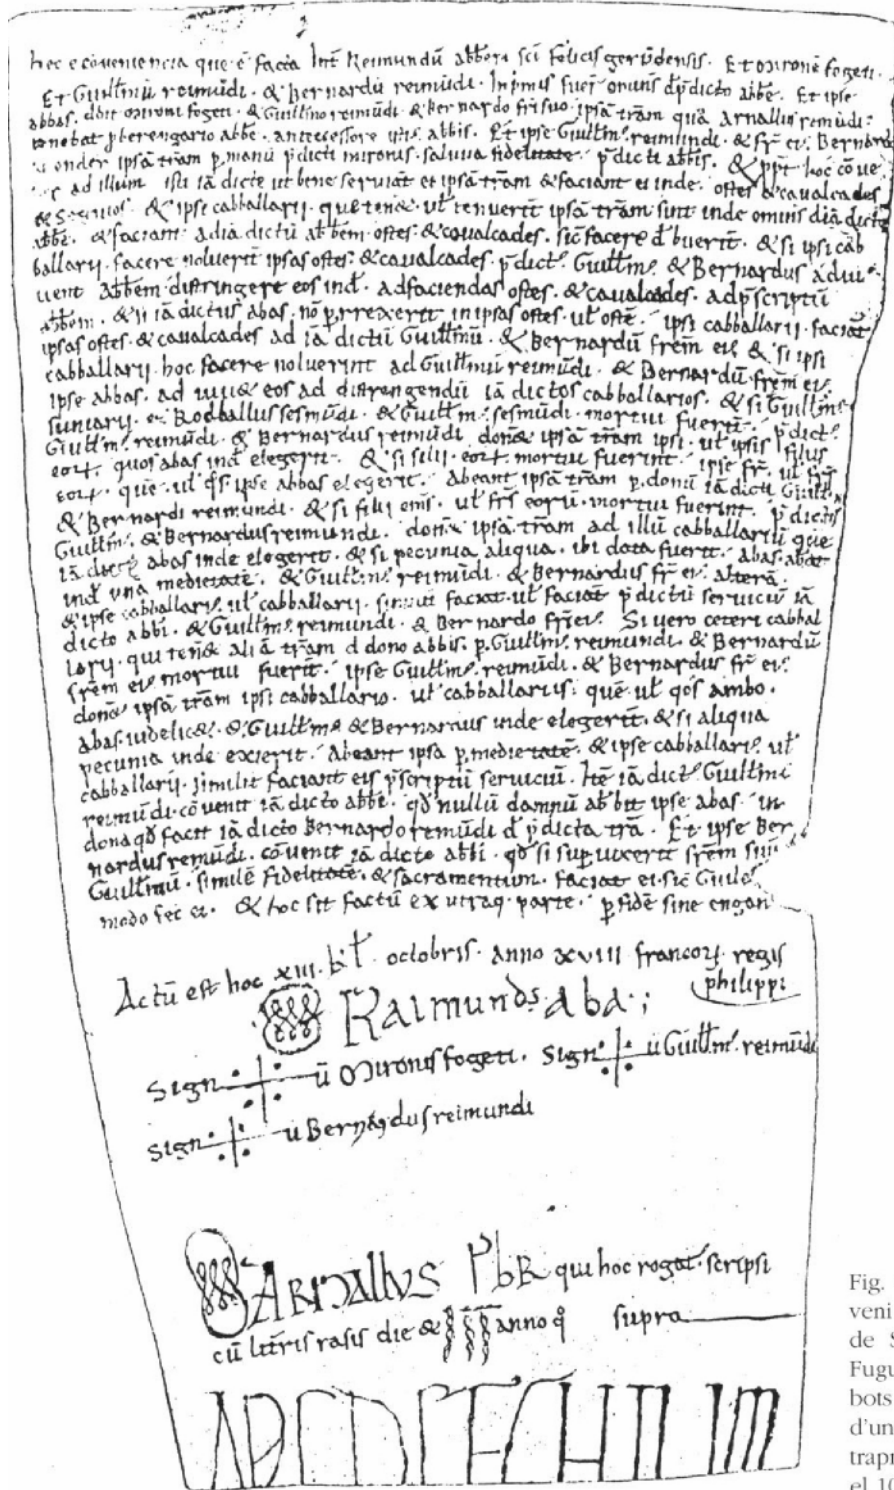 hoc e cōveniencia que ē facta Int̄ Reimundū abbēm sc̄i felicis gerūdensis. Et Mironē fogeti.
Et Guillmū reimūdi. & Bernardū reimūdi. Inp̄mis fuer̄ omīns p̄dicto abbē. Et ipse
abbas. dōit Mironi fogeti. & Guillmo reimūdi & Bernardo fr̄i suo. ipsā trām quā Arnallus reimūdi.
tenebat p berengario abbē. antecessore isti abbis. Et ipse Guillm. reimundi. & fr̄ ei. Bernard
onder ipsā trām p manū p̄dicti mironis. salvva fidelitate p̄dicti abbis. & pp̄t hoc cōve
ad illum isti iā dicte ut bene serviāt et ipsā trām & faciant ei inde. ostes & cavalcades
& Seguios. & ipsi cabballarii. que ten& ul̄ tenuerīt ipsā trām. sint inde omīns diā dicto
abbē. & faciant. adiā dictū abbēm ostes. & cavalcades. sic̄ facere d̄buerīt. & si ipsi cab
ballarii. facere noluerīt ipsas ostes. & cavalcades. p̄dict. Guillm. & Bernardus adiu
vent abbēm distringere eos ind̄. adfaciendas ostes. & cavalcades. adp̄scriptū
abbēm. & si iādictus abas. nō prexerit in ipsas ostes. ul̄ ostē. ipsi cabballarii. faciāt
ipsas ostes. & cavalcades ad iā dictū Guillmū. & Bernardū frēm ei. & si ipsi
cabballarii. hoc facere noluerint ad Guillmū reimūdi. & Bernardū frēm ei.
ipse abbas. ad iuv& eos ad distrengendū iā dictos cabballarios. & si Guillm.
suniarii. et Rodballus sesmūdi. & Guillm. sesmūdi. mortui fuerīt. p̄dict.
Guillm. reimundi. & Bernardus reimūdi don& ipsā trām ipsi. ul̄ ipsis filus
eor. quos abas ind̄ elegerit. & si filii. eor. mortui fuerint. ipse fr̄. ul̄ fr̄s
eor. quē. ul̄ q̄s ipse abbas elegerit. Abeant ipsā trām p donū iā dicti Guillm
& Bernardi reimundi. & si filii eni. ul̄ frs̄ eorū. mortui fuerint. p̄dictus
Guillm. & Bernardus reimundi. don& ipsā trām ad illū cabballariū quē
iā dict. abas inde elegerit. & si pecunia aliqua. ibi data fuerit. abas abeat
ind̄ una medietatē. & Guillm. reimūdi. & Bernardus fr̄ ei. alterā.
& ipse cabballari. ul̄ cabballarii. simut faciat. ul̄ faciāt p̄dictū serviciū iā
dicto abbi. & Guillm. reimundi. & Bernardo fr̄i ei. Si vero ceteri cabbal
larii. qui ten& aliā trām d dono abbis. p Guillm. reimundi. & Bernardū
frēm ei. mortui fuerīt. ipse Guillm. reimūdi. & Bernardus fr̄ ei.
don& ipsā trām ipsi cabballario. ul̄ cabballariis. quē ul̄ q̄os ambo.
abas. uidelic&. & Guillm. & Bernardus inde elegerīt. & si aliqua
pecunia inde exierit. Abeant ipsā p medietatē. & ipse cabballari. ul̄
cabballarii. similit faciant eis p̄scriptū serviciū. Itē iā dict. Guillmi
reimūdi. cōvenit iā dicto abbi. qd̄ nullū damnū abbit ipse abas. in
dona qd̄ facit iā dicto Bernardo remūdi d p̄dicta trā. Et ipse Ber
nardus remūdi. cōvenit iā dicte abbi. qd̄ si supvixerit frēm suū
Guillmū. similē fidelitatē. & sacramentum. faciat ei. sic̄ Guile
modo fec ei. & hoc sit factū ex utraq. parte. p fidē sine engan
Actū est hoc XIII. kl̄ octobris. anno XVIII francor. regis
philippi
Raimunds. aba.;
Sign ū Mironis fogeti. Sign ū Guillm. reimūdi
Sign ū Bernardus reimundi
ARNALLVS PbR qui hoc rogat. scripsi
cū littris rasis die & anno q̄ supra
ABCDEFGHILM
Fig.
veni
de S
Fugu
bots
d'un
trapr
el 10